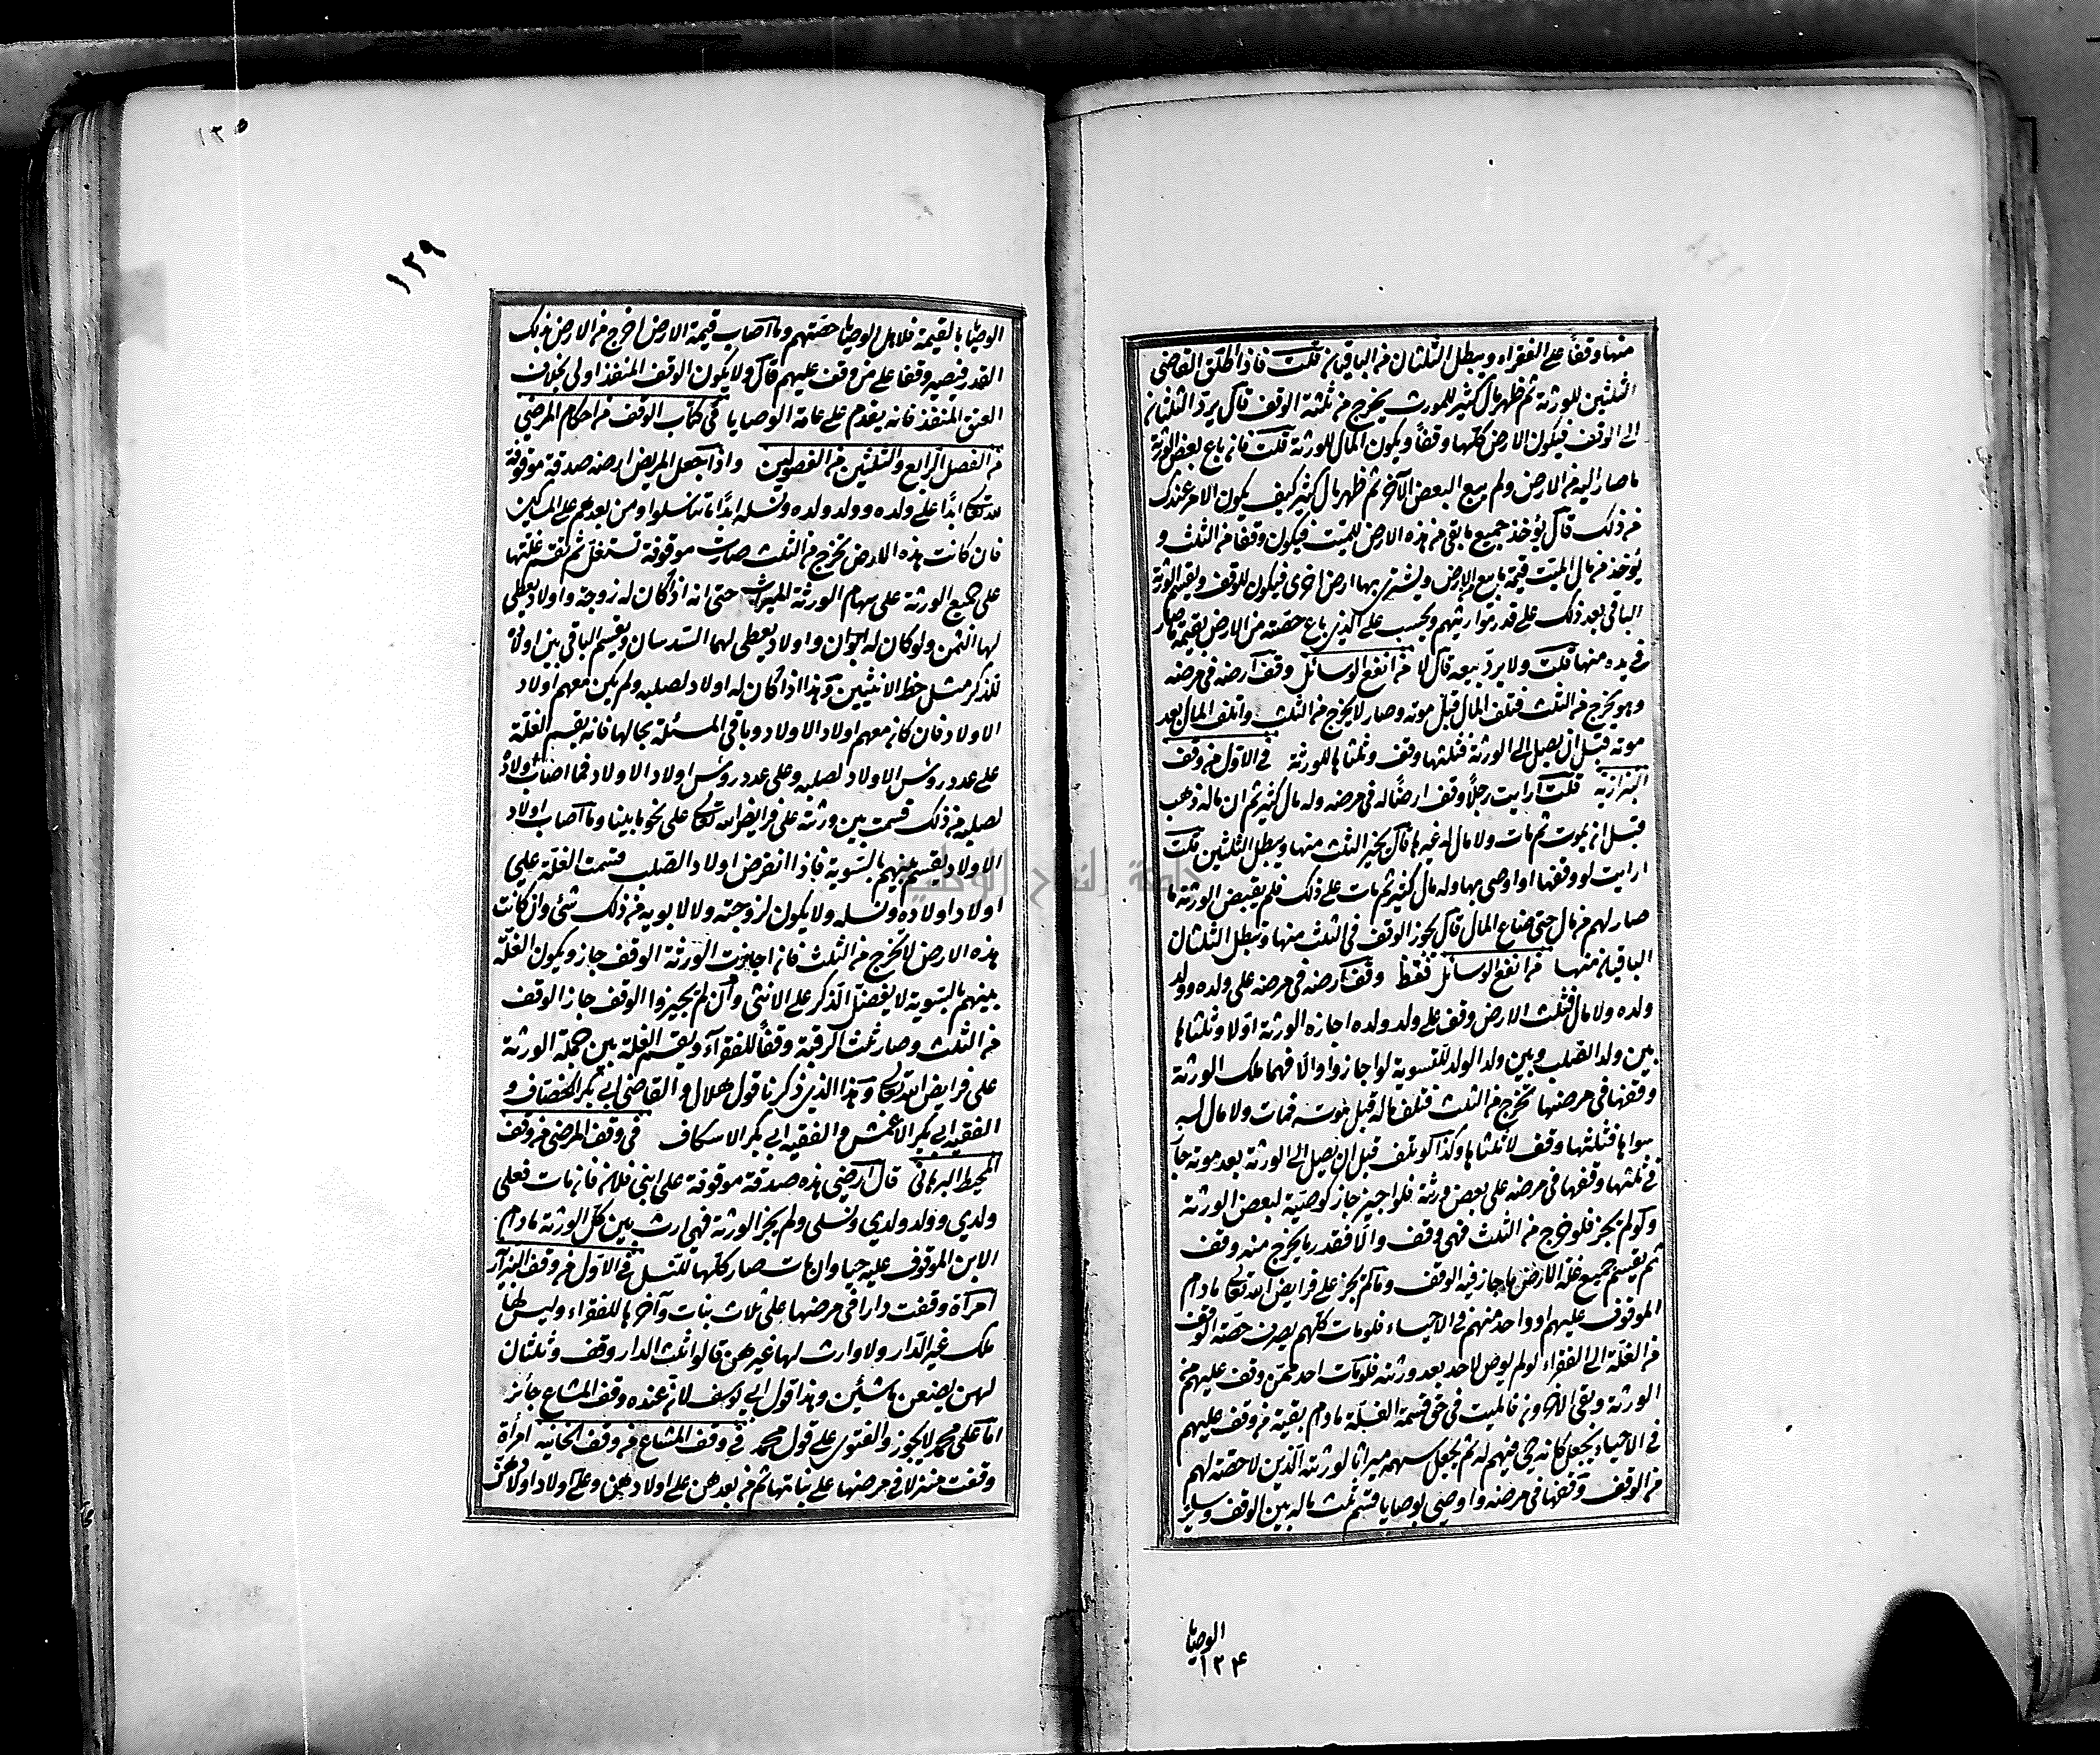 منها وقفاً على الفقراء ويبطل الثلثان من الباقيان قلت فاذا اطلق القاضى
الثلثين للورثة ثم ظهر مال كثير للمورث يخرج من ثلثه الوقف قال يرد الثلثان
الى الوقف فيكون الارض كلها وقفاً ويكون المال للورثة قلت فان باع بعض الورثة
ما صار اليه من الارض ولم يبع البعض الآخر ثم ظهر مال كثير كيف يكون الامر عندك
فى ذلك قال يؤخذ جميع ما بقى من هذه الارض للميت فيكون وقفا من الثلث و
يؤخذ من مال الميت قيمة ما بيع من الارض ويشترى بها ارض اخرى فيكون للوقف ويقسم الورثة
الباقى بعد ذلك على قدر مواريثهم ويحسب على الذى باع حصته من الارض بقيمة ما صار
فى يده منها قلت ولا يرد بيعه قال لا من انفع الوسائل وقف ارضه فى مرضه
وهو يخرج من الثلث فتلف المال قبل موته وصار لا يخرج من الثلث واتلف المال بعد
موته قبل ان يصل الى الورثة فثلثها وقف وثلثاها للورثة فى الاول من وقف
البزازية قلت ارايت رجلاً وقف ارضاً له فى مرضه وله مال كثير ثم ان ماله ذهب
قبل ان يموت ثم مات ولا مال له غيرها قال يجيز الثلث منها ويبطل الثلثين قلت
ارايت لو وقفها او اوصى بها وله مال كثير ثم مات على ذلك فلم يقبض الورثة ما
صار لهم من مال حتى ضاع المال قال يجوز الوقف فى الثلث منها وتبطل الثلثان
الباقيان منها من انفع الوسائل فقط وقف ارضه فى مرضه على ولده وولد
ولده ولا مال فثلث الارض وقف على ولد ولده اجازه الورثة اولا وثلثاها
بين ولد الصلب وبين ولد الولد للتسوية لو اجازوا والا فهما ملك الورثة
وقفها فى مرضها تخرج من الثلث فتلف ماله قبل موته فمات ولا مال له
سواها فثلثها وقف لا ثلثاها وكذا لو تلف قبل ان يصل الى الورثة بعد موته جاز
فى ثلثها وقفها فى مرضه على بعض ورثته فلو اجيز جاز كوصية لبعض الورثة
ولو لم يجز فلو خرج من الثلث فهى وقف والا فقدر ما يخرج منه وقف
ثم يقسم جميع غلة الارض ما جاز فيه الوقف وما لم يجز على فرايض الله تعالى ما دام
الموقوف عليهم او واحد منهم فى الاحياء فلو مات كلهم يصرف حصة الوقف
من الغلة الى الفقراء لو لم يوص لاحد بعد ورثته فلو مات احد ممن وقف عليهم من
الورثة وبقى الآخرون فالميت فى حق قسمة الغلة ما دام بقية من وقف عليهم
فى الاحياء يجعل كانه حى فيقسم له ثم يجعل سهمه ميراثا لورثته الذين لا حصة لهم
من الوقف وقفها فى مرضه واوصى بوصايا قسم ثلث ماله بين الوقف وساير
الوصايا
١٣۴
١٣٥
١٢٩
الوصايا بالقيمة فلاهل الوصايا حصتهم وما اصاب قيمة الارض اخرج من الارض بذلك
القدر فيصير وقفا على من وقف عليهم قال ولا يكون الوقف المنفذ اولى بخلاف
العتق المنفذ فانه يقدم على عامة الوصايا فى كتاب الوقف من احكام المرضى
من الفصل الرابع والثلثين من الفصولين واذا جعل المريض ارضه صدقة موقوفة
لله تعالى ابدًا على ولده وولد ولده ونسله ابدًا ما تناسلوا ومن بعدهم على المساكين
فان كانت هذه الارض تخرج من الثلث صارت موقوفة تستغل ثم تقسم غلتها
على جميع الورثة على سهام الورثة الميراث حتى انه اذا كان له زوجة واولاد يعطى
لها الثمن ولو كان له ابوان واولاد يعطى لهما السدسان ويقسم الباقى بين اولاده
للذكر مثل حظ الانثيين وهذا اذا كان له اولاد لصلبه ولم يكن معهم اولاد
الاولاد فان كان معهم اولاد الاولاد وباقى المسئلة بحالها فانه يقسم الغلة
على عدد رؤس الاولاد لصلبه وعلى عدد رؤس اولاد الاولاد فما اصاب اولاده
لصلبه من ذلك قسمت بين ورثته على فرايض الله تعالى على نحو ما بينا وما اصاب اولاد
الاولاد يقسم بينهم بالسوية فاذا انقرض اولاد الصلب قسمت الغلة على
اولاد اولاده ونسله ولا يكون لزوجته ولا لابويه من ذلك شئ وان كانت
هذه الارض لا تخرج من الثلث فان اجازت الورثة الوقف جاز ويكون الغلة
بينهم بالسوية لا يفضل الذكر على الانثى وان لم يجيزوا الوقف جاز الوقف
من الثلث وصار ثلث الرقبة وقفاً للفقراء ويقسم الغلة بين جملة الورثة
على فرايض الله تعالى وهذا الذى ذكرنا قول هلال والقاضى ابى بكر الخصاف و
الفقيه ابى بكر الاعمش والفقيه ابى بكر الاسكاف فى وقف المرضى من وقف
المحيط البرهانى قال ارضى هذه صدقة موقوفة على ابنى فلان فان مات فعلى
ولدى وولد ولدى ونسلى ولم يجز الورثة فهى ارث بين كل الورثة ما دام
الابن الموقوف عليه حيا وان مات صار كلها للنسل فى الاول من وقف البزازية
امرأة وقفت دارا فى مرضها على ثلاث بنات وآخرها للفقراء وليس لها
ملك غير الدار ولا وارث لها غيرهن قالوا ثلث الدار وقف وثلثان
لهن يصنعن ما شئن وهذا قول ابى يوسف لان عنده وقف المشاع جائز
اما على محمد لا يجوز والفتوى على قول محمد فى وقف المشاع من وقف الخانية امرأة
وقفت منزلا فى مرضها على بناتها ثم من بعدهن على اولادهن وعلى اولاد اولادهن
جامعة النجاح الوطنية